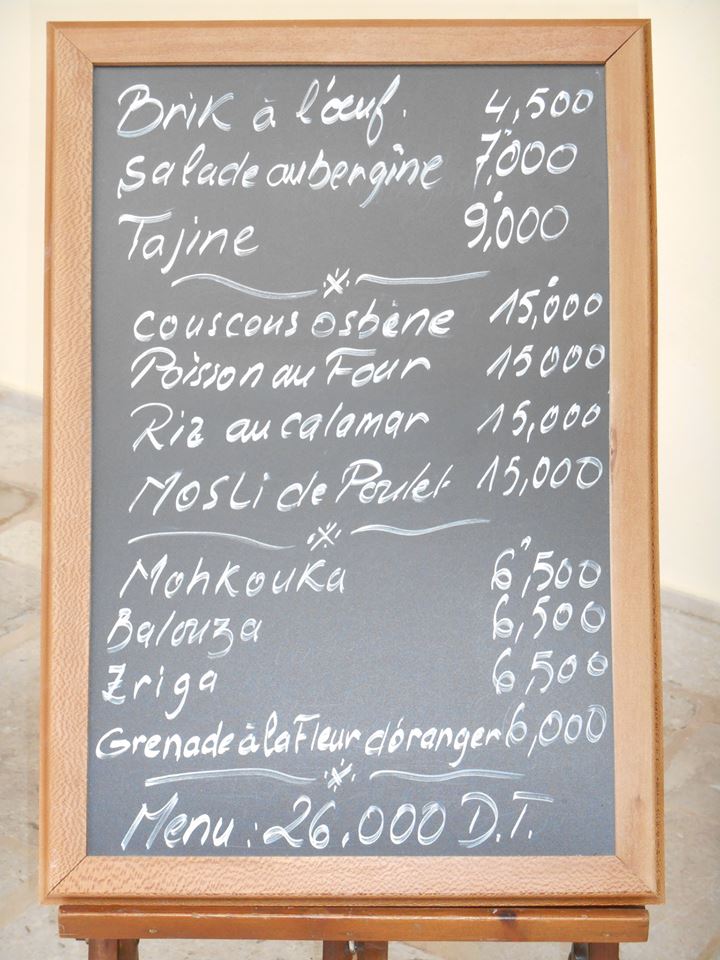 Brik à l'œuf. 4,500
Salade aubergine 7,000
Tajine 9,000
couscous osbène 15,000
Poisson au Four 15000
Riz au calamar 15,000
Mosli de Poulet 15,000
Mohkouka 6,500
Balouza 6,500
Zriga 6,500
Grenade à la Fleur d'óranger 6,000
Menu : 26.000 D.T.